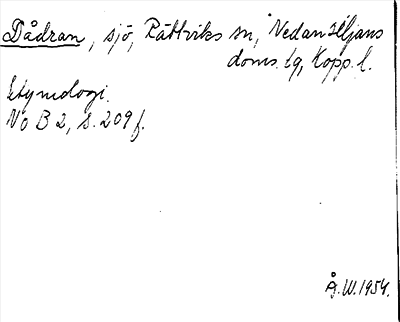 Dådran, sjö, Rättviks sn, Nedansiljans
doms. tg, Kopp. l.
Etymologi.
No B 2, s. 209 f.
Å.W. 1954.